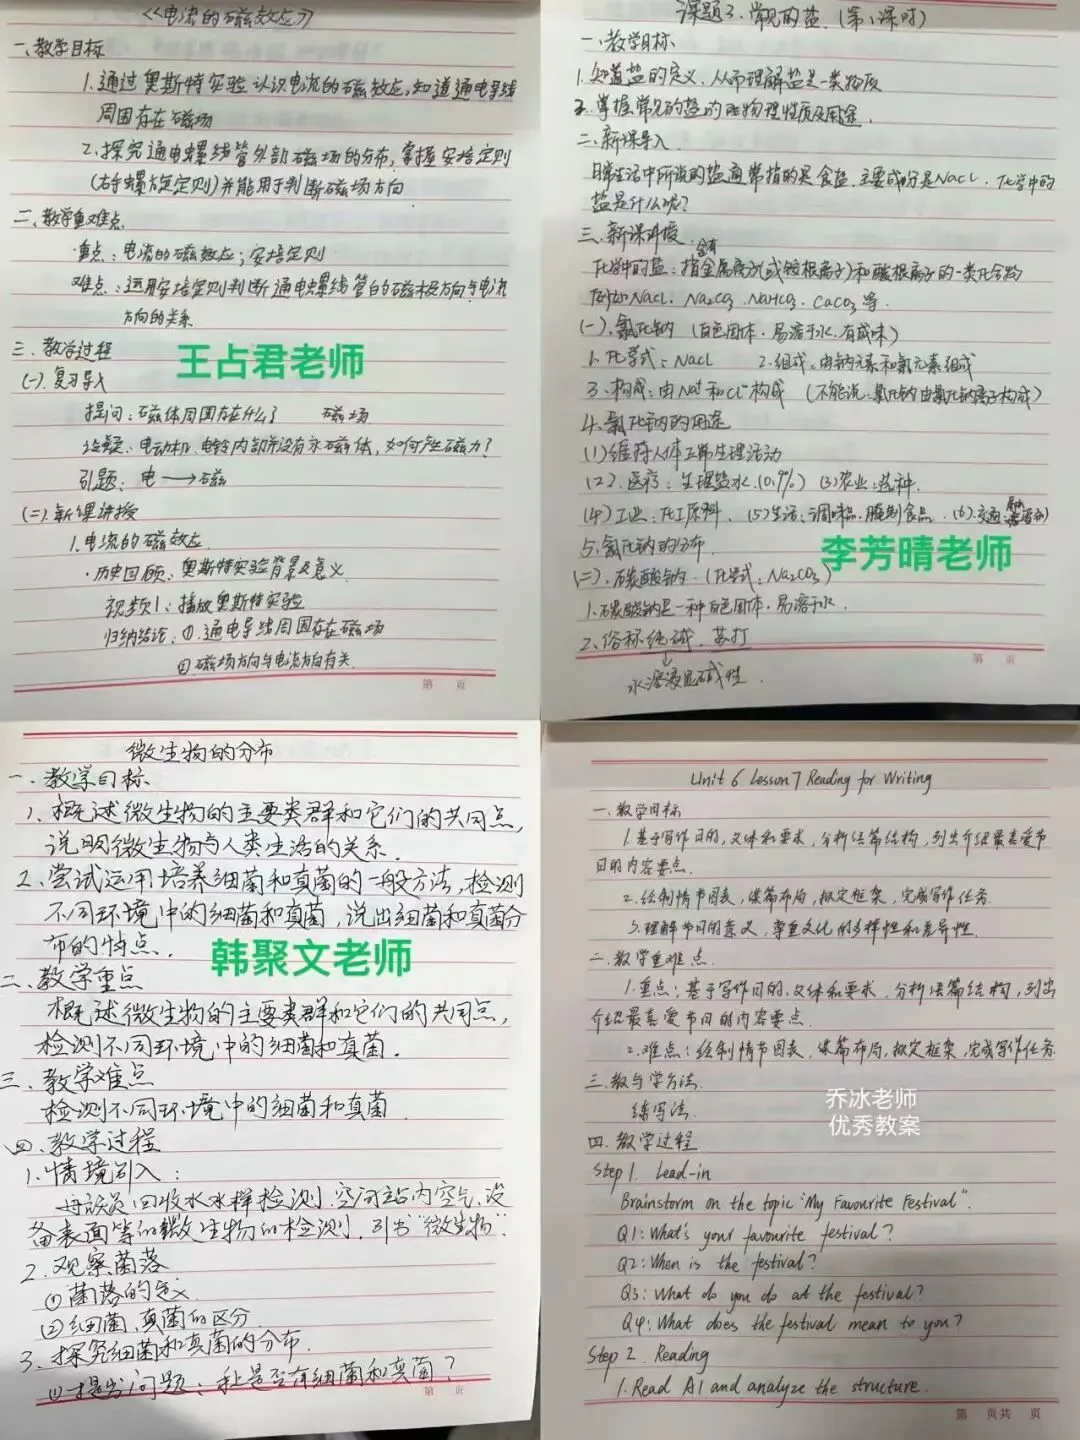 《电流的磁效应》
一、教学目标
1.通过奥斯特实验认识电流的磁效应,知道通电导线
周围存在磁场
2.探究通电螺线管外部磁场的分布,掌握安培定则
(右手螺旋定则)并能用于判断磁场方向
二、教学重难点
重点:电流的磁效应;安培定则
难点:运用安培定则判断通电螺线管的磁极方向与电流
方向的关系
三、教学过程
王占君老师
(一).复习导入
提问:磁体周围存在什么? 磁场
设疑:电动机、电铃内部并没有永磁体,如何产生磁力?
引题:电→磁
(二).新课讲授
1.电流的磁效应
·历史回顾:奥斯特实验背景及意义
视频1:播放奥斯特实验
归纳结论:①通电导线周围存在磁场
②磁场方向与电流方向有关.
第 页
课题3.常见的盐.(第1课时)
一、教学目标
1.知道盐的定义,从而理解盐是一类物质
2.掌握常见的盐的物理性质及用途.
二、新课导入
日常生活中所说的盐通常指的是食盐,主要成分是NaCl.化学中的
盐是什么呢?
三、新课讲授
化学中的盐:指含有金属离子(或铵根离子)和酸根离子的一类化合物
例如NaCl.Na2CO3.NaHCO3.CaCO3等.
(一).氯化钠(白色固体.易溶于水.有咸味)
1.化学式:NaCl 2.组成:由钠元素和氯元素组成
3.构成:由Na+和Cl-构成(不能说:氯化钠由氯化钠离子构成)
4.氯化钠的用途
(1)维持人体正常生理活动
(2).医疗:生理盐水(0.9%) (3)农业:选种.
(4)工业:化工原料. (5)生活:调味品.腌制食品. (6).交通:
5.氯化钠的分布.
李芳晴老师
(二).碳酸钠.(化学式:Na2CO3)
1.碳酸钠是一种白色固体.易溶于水.
2.俗称纯碱.苏打
↓
水溶液显碱性.
第 页
微生物的分布
一.教学目标
1.概述微生物的主要类群和它们的共同点,
说明微生物与人类生活的关系.
2.尝试运用培养细菌和真菌的一般方法,检测
不同环境中的细菌和真菌,说出细菌和真菌分
布的特点.
韩聚文老师
二、教学重点
概述微生物的主要类群和它们的共同点,
检测不同环境中的细菌和真菌.
三、教学难点
检测不同环境中的细菌和真菌
四、教学过程
1.情境引入:
航天员回收水水样检测.空间站内空气、设
备表面等的微生物的检测.引出“微生物”.
2.观察菌落
①菌落的定义
②细菌、真菌的区分.
3.探究细菌和真菌的分布.
①提出问题: 上是否有细菌和真菌?
第 页
Unit 6 Lesson 7 Reading for Writing
一.教学目标
1.基于写作目的,文体和要求,分析语篇结构,列出介绍最喜爱节
日的内容要点.
2.绘制情节图表,谋篇布局,拟定框架,完成写作任务.
3.理解节日的意义,尊重文化的多样性和差异性.
二.教学重难点.
1.重点:基于写作目的,文体和要求,分析语篇结构,列出
介绍最喜爱节日的内容要点.
2.难点:绘制情节图表,谋篇布局,拟定框架,完成写作任务.
三.教与学方法.
练写法.
乔冰老师
优秀教案
四.教学过程
Step 1. Lead-in
Brainstorm on the topic "My Favourite Festival".
Q1: What's your favourite festival?
Q2: When is the festival?
Q3: What do you do at the festival?
Q4: What does the festival mean to you?
Step 2. Reading
1. Read A1 and analyze the structure.
第 页共 页